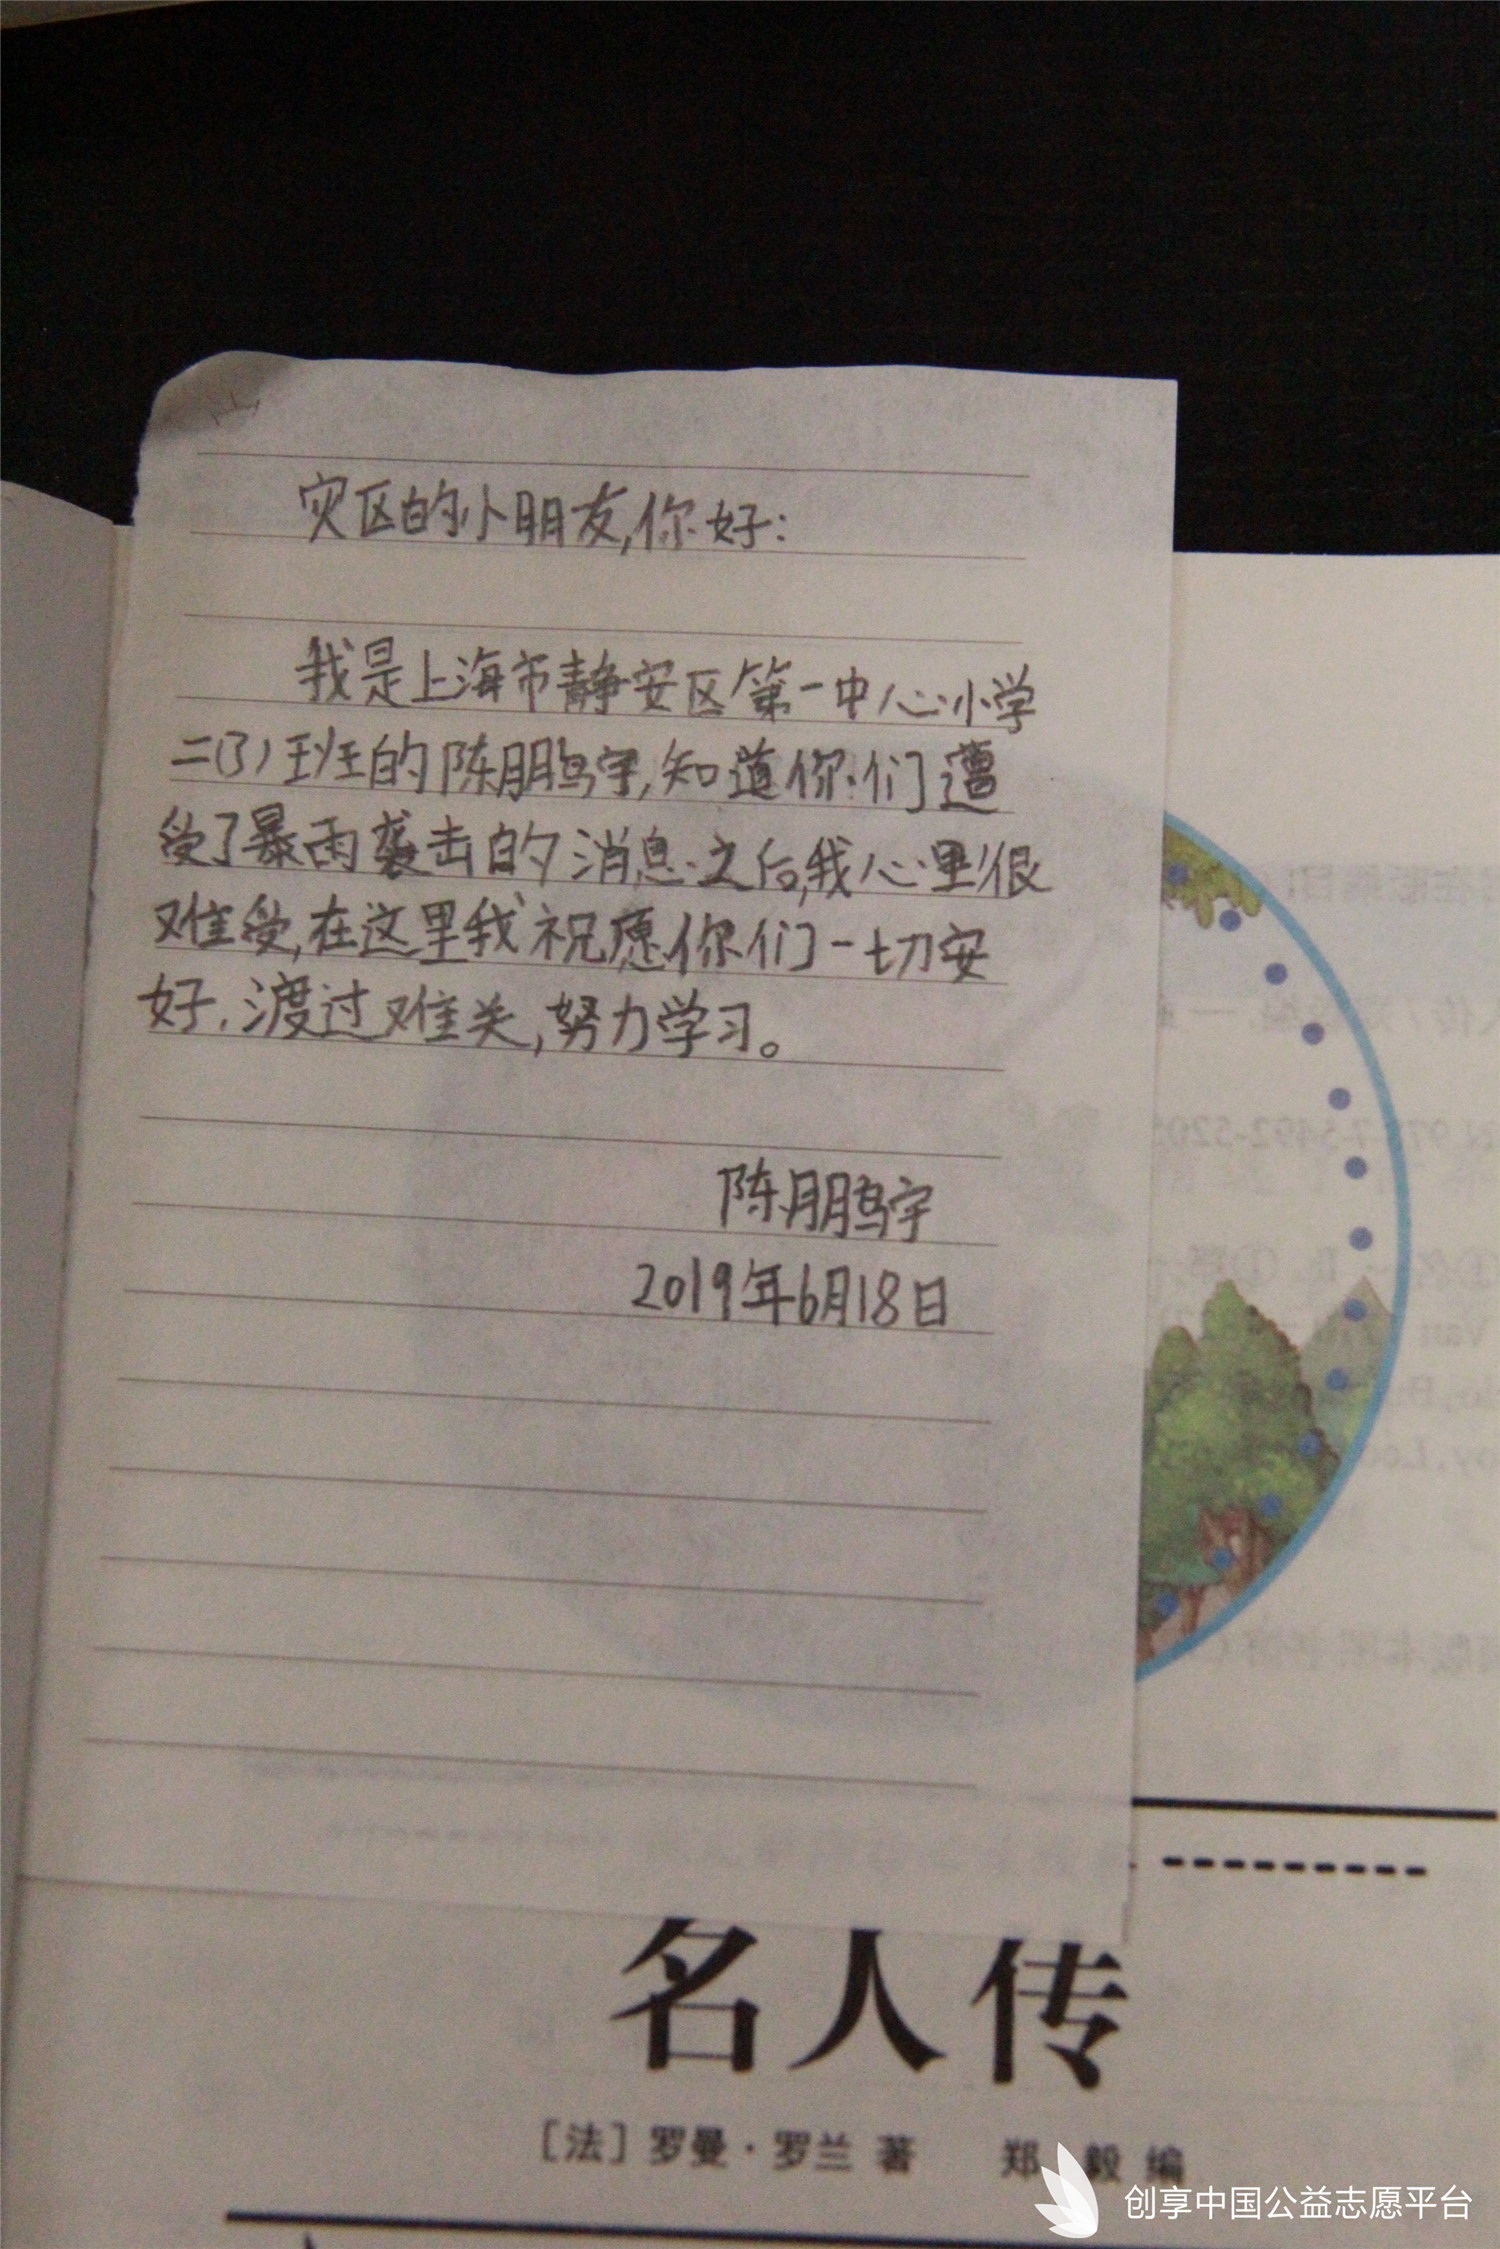 灾区的小朋友,你好:
我是上海市静安区第一中心小学
二(3)班的陈鹏宇,知道你们遭
受了暴雨袭击的消息之后,我心里很
难受,在这里我祝愿你们一切安
好,渡过难关,努力学习。
陈鹏宇
2019年6月18日
名人传
[法]罗曼·罗兰 著 郑 毅 编
创享中国公益志愿平台